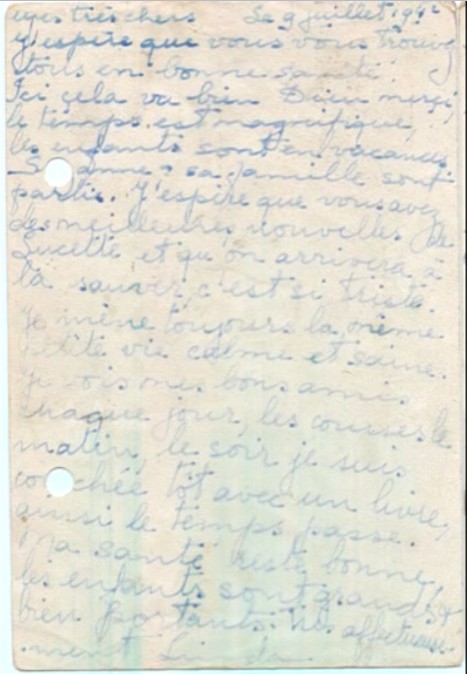 mes très chers Le 9 juillet 1942
J'espère que vous vous trouvez
tous en bonne santé.
Ici cela va bien Dieu merci,
le temps est magnifique,
les enfants sont en vacances
Suzanne & sa famille sont
partis. J'espère que vous avez
des meilleures nouvelles de
Lucette et qu'on arrivera à
la sauver, c'est si triste.
Je mène toujours la même
petite vie calme et saine.
Je vois mes bons amis
chaque jour, les courses le
matin, le soir je suis
couchée tôt avec un livre,
ainsi le temps passe.
Ma santé reste bonne,
les enfants sont grands &
bien portants. affectueuse-
ment